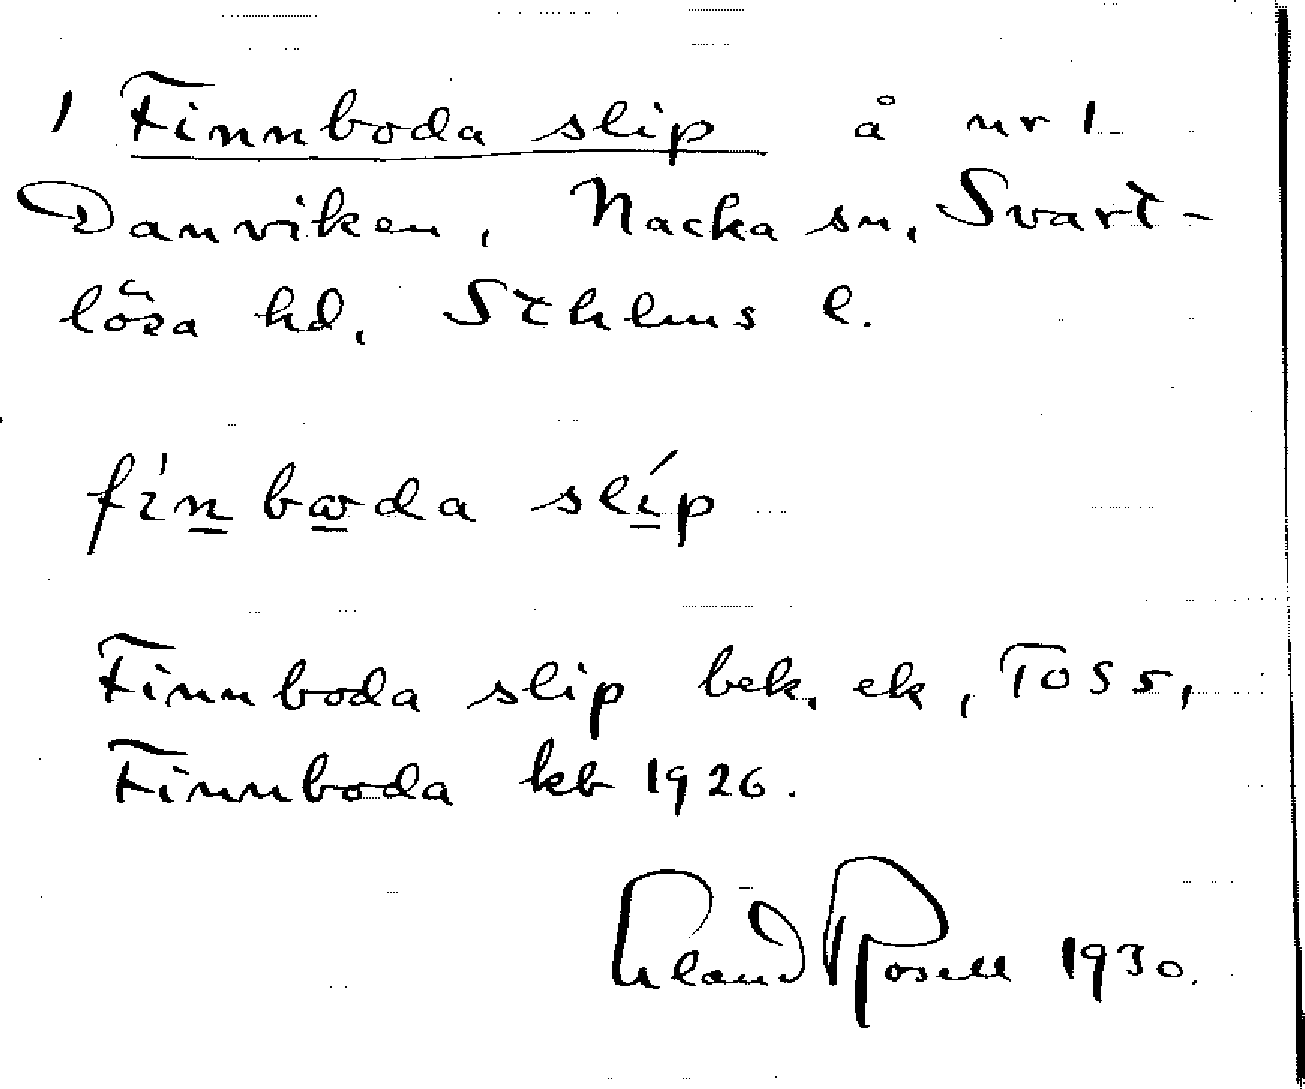 1 Finnboda slip å nr 1
Danviken, Nacka sn, Svart-
lösa hd, Sthlms l.
fi'n bωda slíp
Finnboda slip bek. ek, TOS 5,
Finnboda kb 1926.
Erland Rosell 1930.